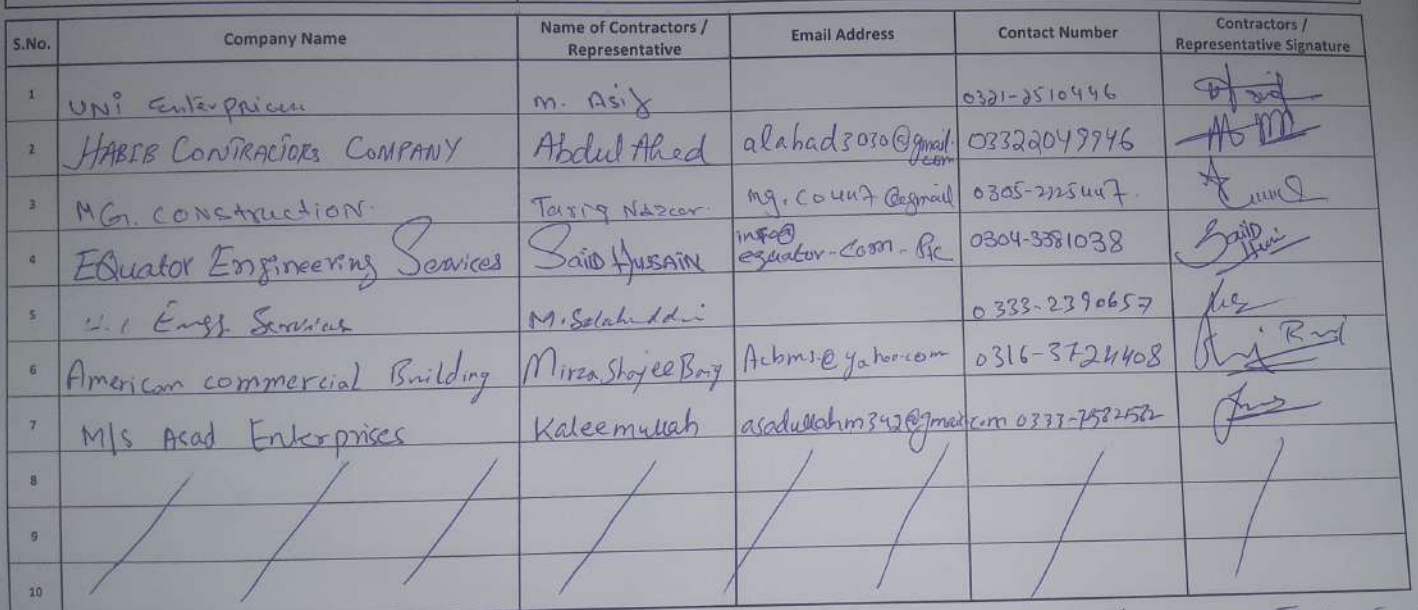 S.No. Company Name Name of Contractors / Representative Email Address Contact Number Contractors / Representative Signature
1 UNi Enterprises M. Asif 0321-2510446
2 HABIB CONTRACTORS COMPANY Abdul Ahed alahad3030@gmail.com 03322049946
3 MG. CONStruction. Tariq 0305-2225447.
4 EQuator Engineering Services SaiiD HUSSAIN info@ 0304-3381038
5 Engg. Services M. Salahuddin 0333-2390657
6 American commercial Building Mirza Shojee Baig Acbms@yahoo.com 0316-3724408
7 M/s Asad Enterprises Kaleemullah asadullahm342@gmail.com 0333-2582582
8
9
10